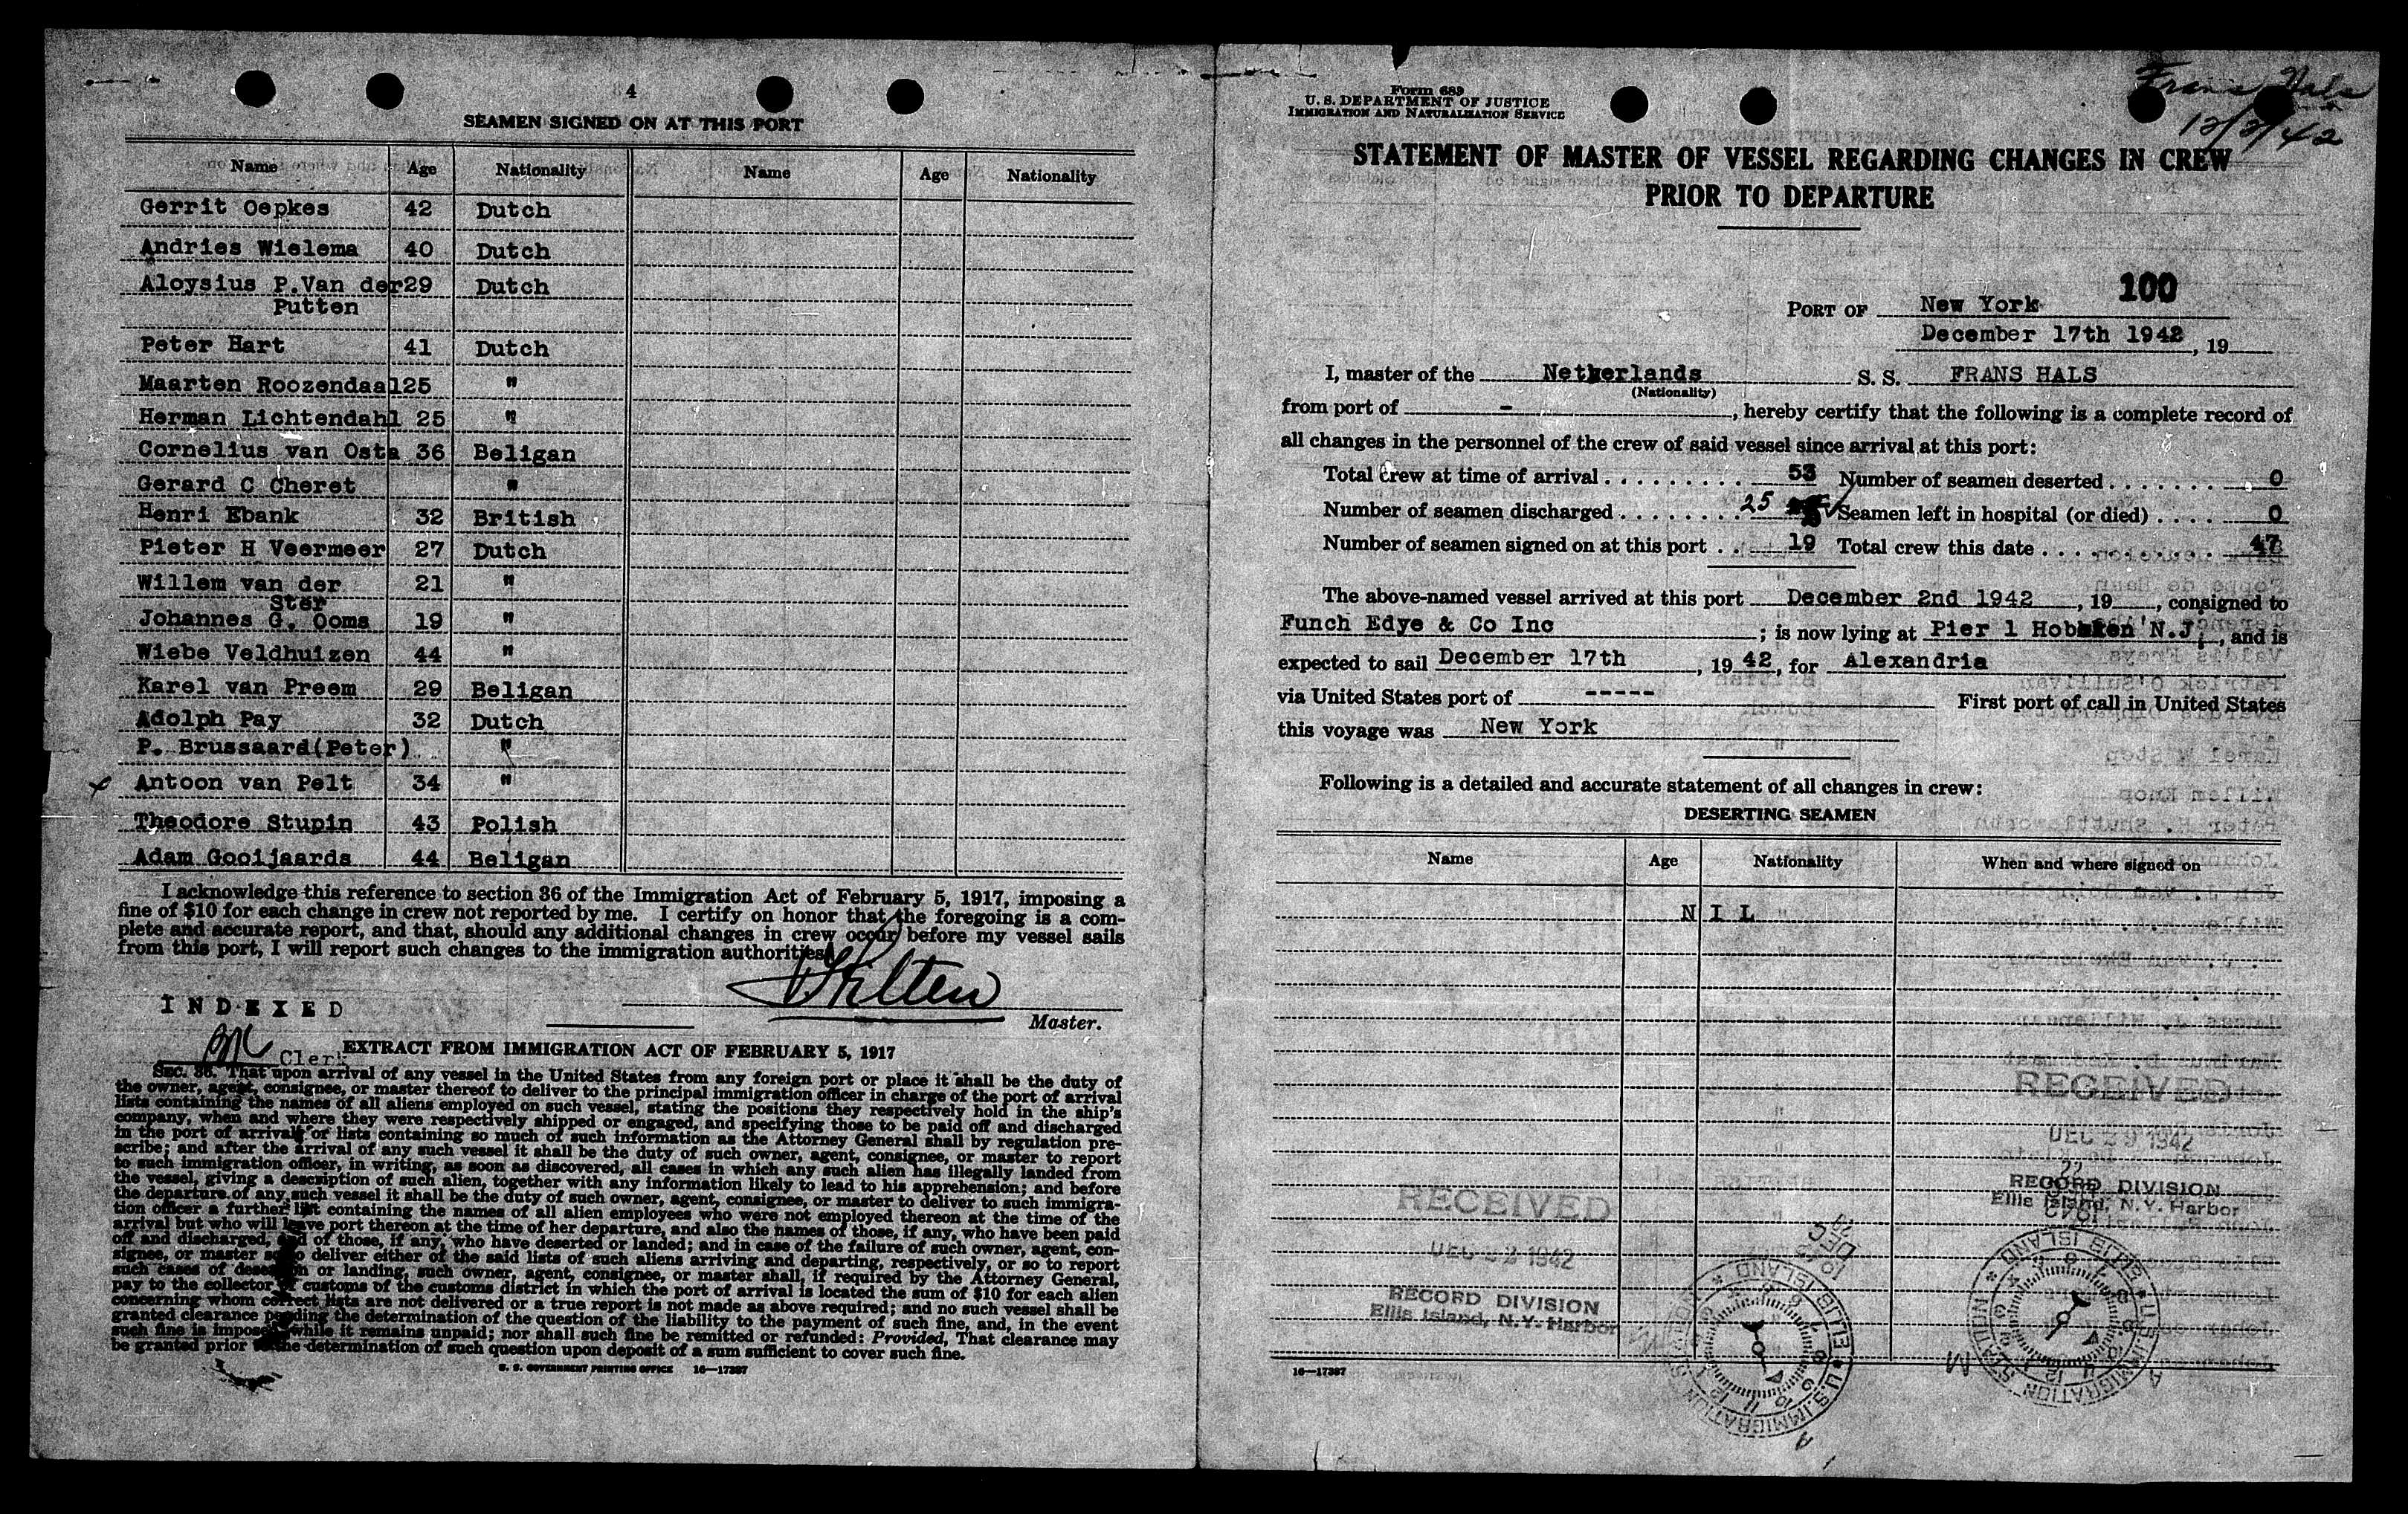 4
SEAMEN SIGNED ON AT THIS PORT
Name Age Nationality Name Age Nationality
Gerrit Oepkes 42 Dutch
Andries Wielema 40 Dutch
Aloysius P.Van der 29 Dutch
Putten
Peter Hart 41 Dutch
Maarten Roozendaal 25 "
Herman Lichtendahl 25 "
Cornelius van Osta 36 Beligan
Gerard C Cheret "
Henri Ebank 32 British
Pieter H Veermeer 27 Dutch
Willem van der 21 "
Ster
Johannes G. Ooms 19 "
Wiebe Veldhuizen 44 "
Karel van Preem 29 Beligan
Adolph Pay 32 Dutch
P. Brussaard(Peter) "
x Antoon van Pelt 34 "
Theodore Stupin 43 Polish
Adam Gooijaards 44 Beligan
I acknowledge this reference to section 36 of the Immigration Act of February 5, 1917, imposing a
fine of $10 for each change in crew not reported by me. I certify on honor that the foregoing is a com-
plete and accurate report, and that, should any additional changes in crew occur before my vessel sails
from this port, I will report such changes to the immigration authorities.
Master.
INDEXED
Clerk
EXTRACT FROM IMMIGRATION ACT OF FEBRUARY 5, 1917
SEC. 36. That upon arrival of any vessel in the United States from any foreign port or place it shall be the duty of
the owner, agent, consignee, or master thereof to deliver to the principal immigration officer in charge of the port of arrival
lists containing the names of all aliens employed on such vessel, stating the positions they respectively hold in the ship's
company, when and where they were respectively shipped or engaged, and specifying those to be paid off and discharged
in the port of arrival; or lists containing so much of such information as the Attorney General shall by regulation pre-
scribe; and after the arrival of any such vessel it shall be the duty of such owner, agent, consignee, or master to report
to such immigration officer, in writing, as soon as discovered, all cases in which any such alien has illegally landed from
the vessel, giving a description of such alien, together with any information likely to lead to his apprehension; and before
the departure of any such vessel it shall be the duty of such owner, agent, consignee, or master to deliver to such immigra-
tion officer a further list containing the names of all alien employees who were not employed thereon at the time of the
arrival but who will leave port thereon at the time of her departure, and also the names of those, if any, who have been paid
off and discharged, and of those, if any, who have deserted or landed; and in case of the failure of such owner, agent, con-
signee, or master so to deliver either of the said lists of such aliens arriving and departing, respectively, or so to report
such cases of desertion or landing, such owner, agent, consignee, or master shall, if required by the Attorney General,
pay to the collector of customs of the customs district in which the port of arrival is located the sum of $10 for each alien
concerning whom correct lists are not delivered or a true report is not made as above required; and no such vessel shall be
granted clearance pending the determination of the question of the liability to the payment of such fine, and, in the event
such fine is imposed, while it remains unpaid; nor shall such fine be remitted or refunded: Provided, That clearance may
be granted prior to the determination of such question upon deposit of a sum sufficient to cover such fine.
U. S. GOVERNMENT PRINTING OFFICE 16—17387
Form 689
U. S. DEPARTMENT OF JUSTICE
IMMIGRATION AND NATURALIZATION SERVICE
Frans Hals
12/2/42
STATEMENT OF MASTER OF VESSEL REGARDING CHANGES IN CREW
PRIOR TO DEPARTURE
100
PORT OF New York
December 17th 1942, 19
I, master of the Netherlands S. S. FRANS HALS
(Nationality)
from port of -, hereby certify that the following is a complete record of
all changes in the personnel of the crew of said vessel since arrival at this port:
Total crew at time of arrival 53 Number of seamen deserted 0
Number of seamen discharged 25 Seamen left in hospital (or died) 0
Number of seamen signed on at this port 19 Total crew this date 47
The above-named vessel arrived at this port December 2nd 1942, 19, consigned to
Funch Edye & Co Inc; is now lying at Pier 1 Hoboken N.J., and is
expected to sail December 17th, 1942, for Alexandria
via United States port of ----- First port of call in United States
this voyage was New York
Following is a detailed and accurate statement of all changes in crew:
DESERTING SEAMEN
Name Age Nationality When and where signed on
NIL
RECEIVED
DEC 29 1942
RECORD DIVISION
Ellis Island, N.Y. Harbor
RECEIVED
DEC 22 1942
RECORD DIVISION
Ellis Island, N.Y. Harbor
U.S. IMMIGRATION STATION * ELLIS ISLAND *
U.S. IMMIGRATION STATION * ELLIS ISLAND *
16—17387